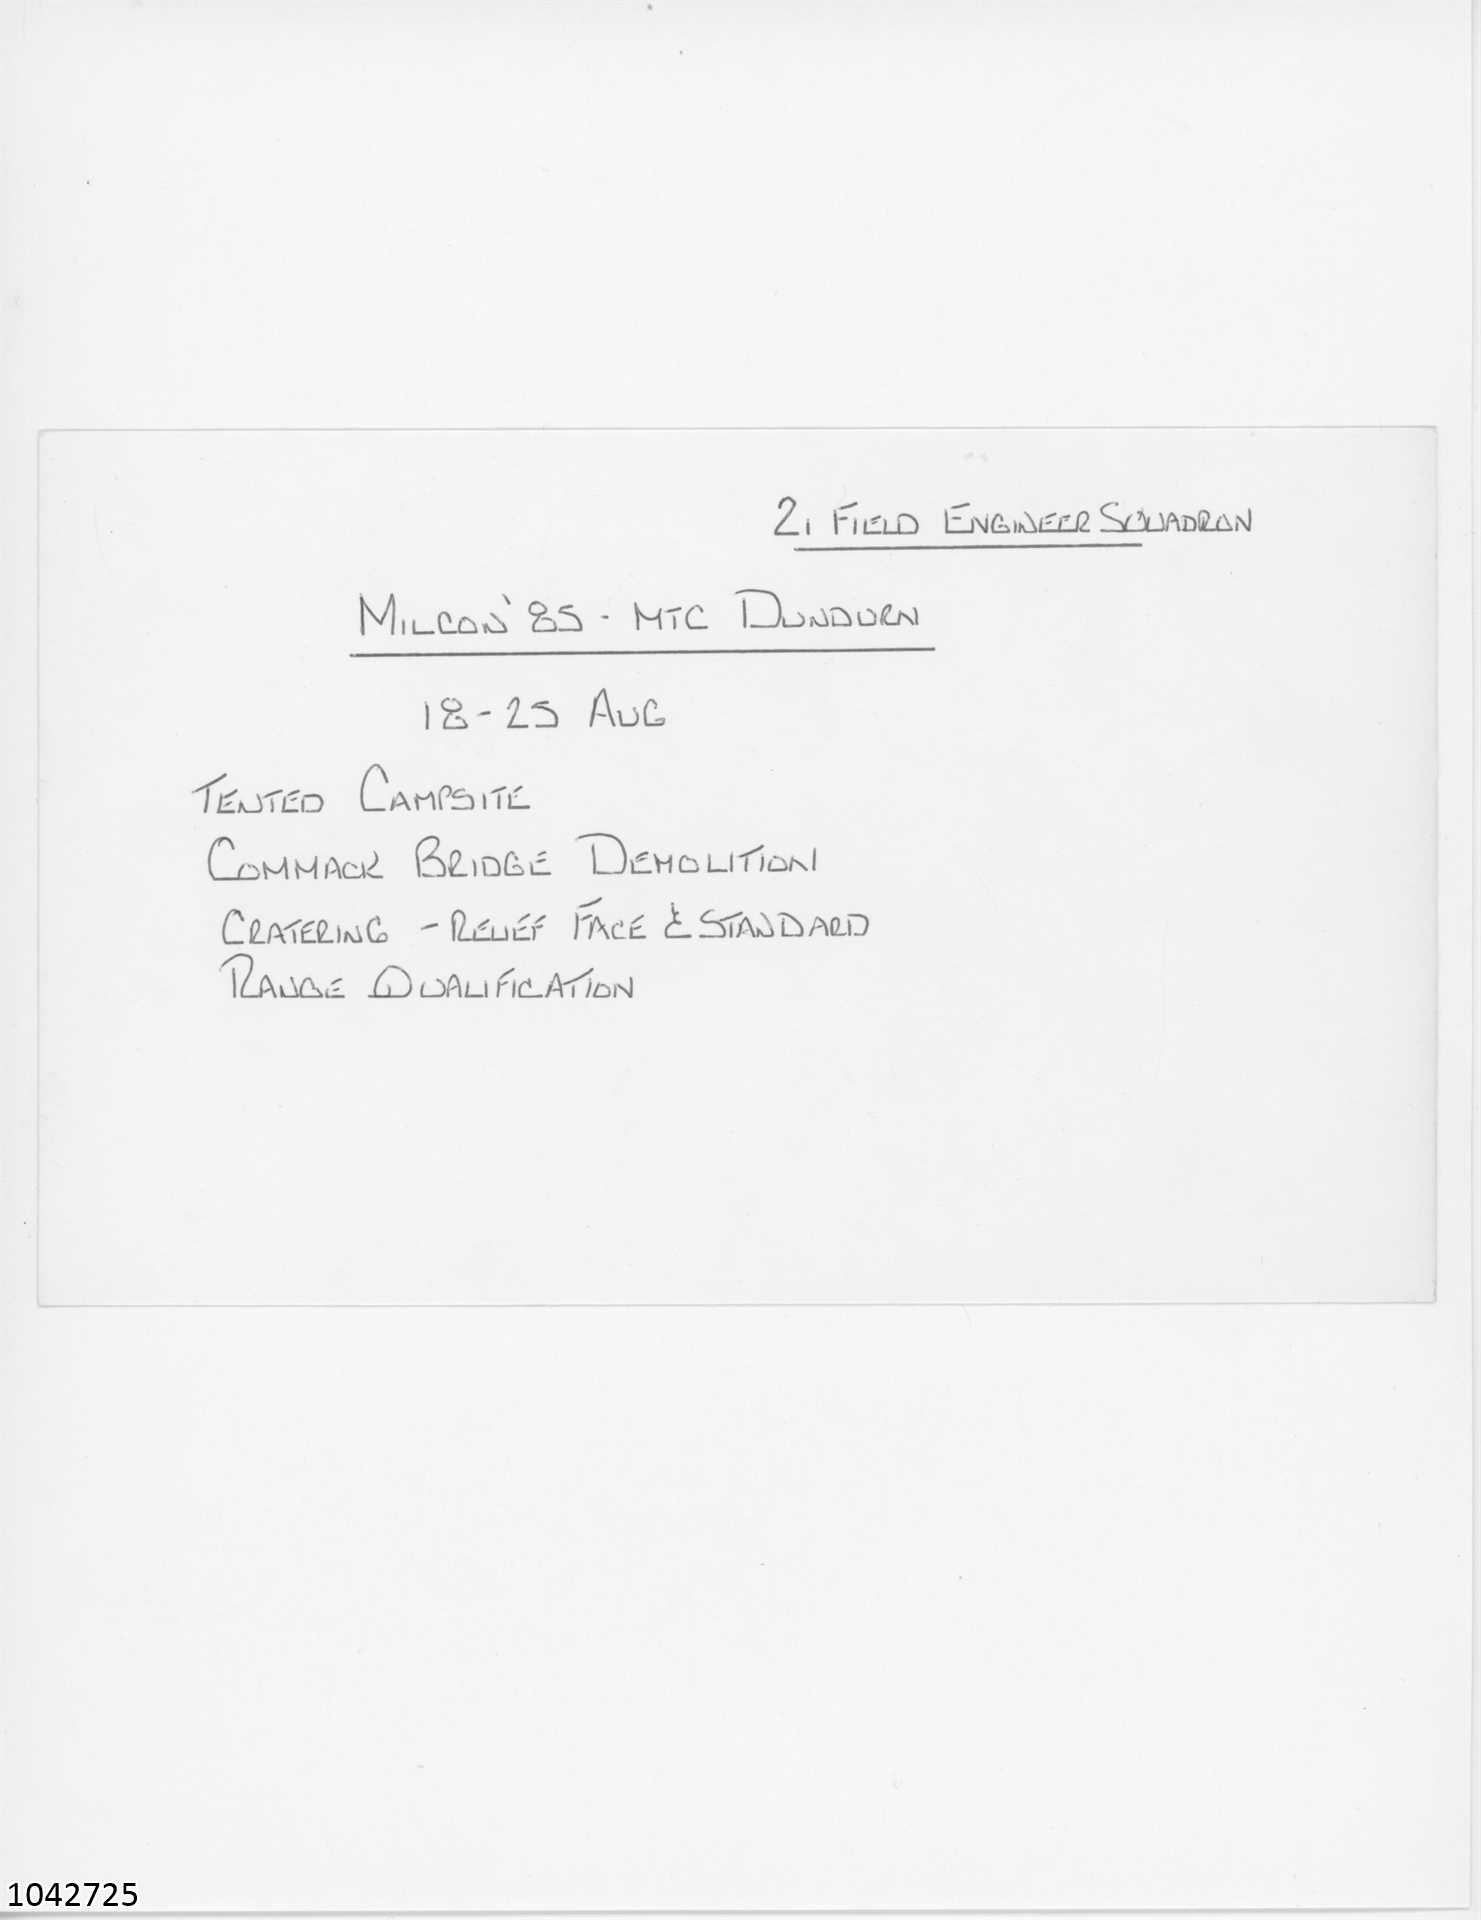 21 FIELD ENGINEER SQUADRON
MILCON '85 - MTC DUNDURN
18-25 AUG
TENTED CAMPSITE
COMMACK BRIDGE DEMOLITION
CRATERING - RELIEF FACE & STANDARD
RANGE QUALIFICATION
1042725